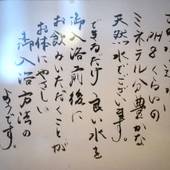 ミネラル分豊かな
天然水でございます
できるだけ良い水を
御入浴前後に
お飲みいただくことが
お体にやさしい
御入浴方法の
ようです。